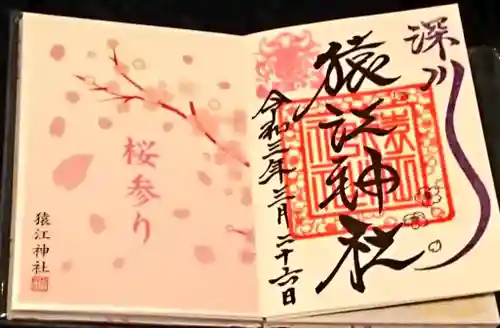 深川
猿江神社
令和三年三月二十六日
桜参り
猿江神社